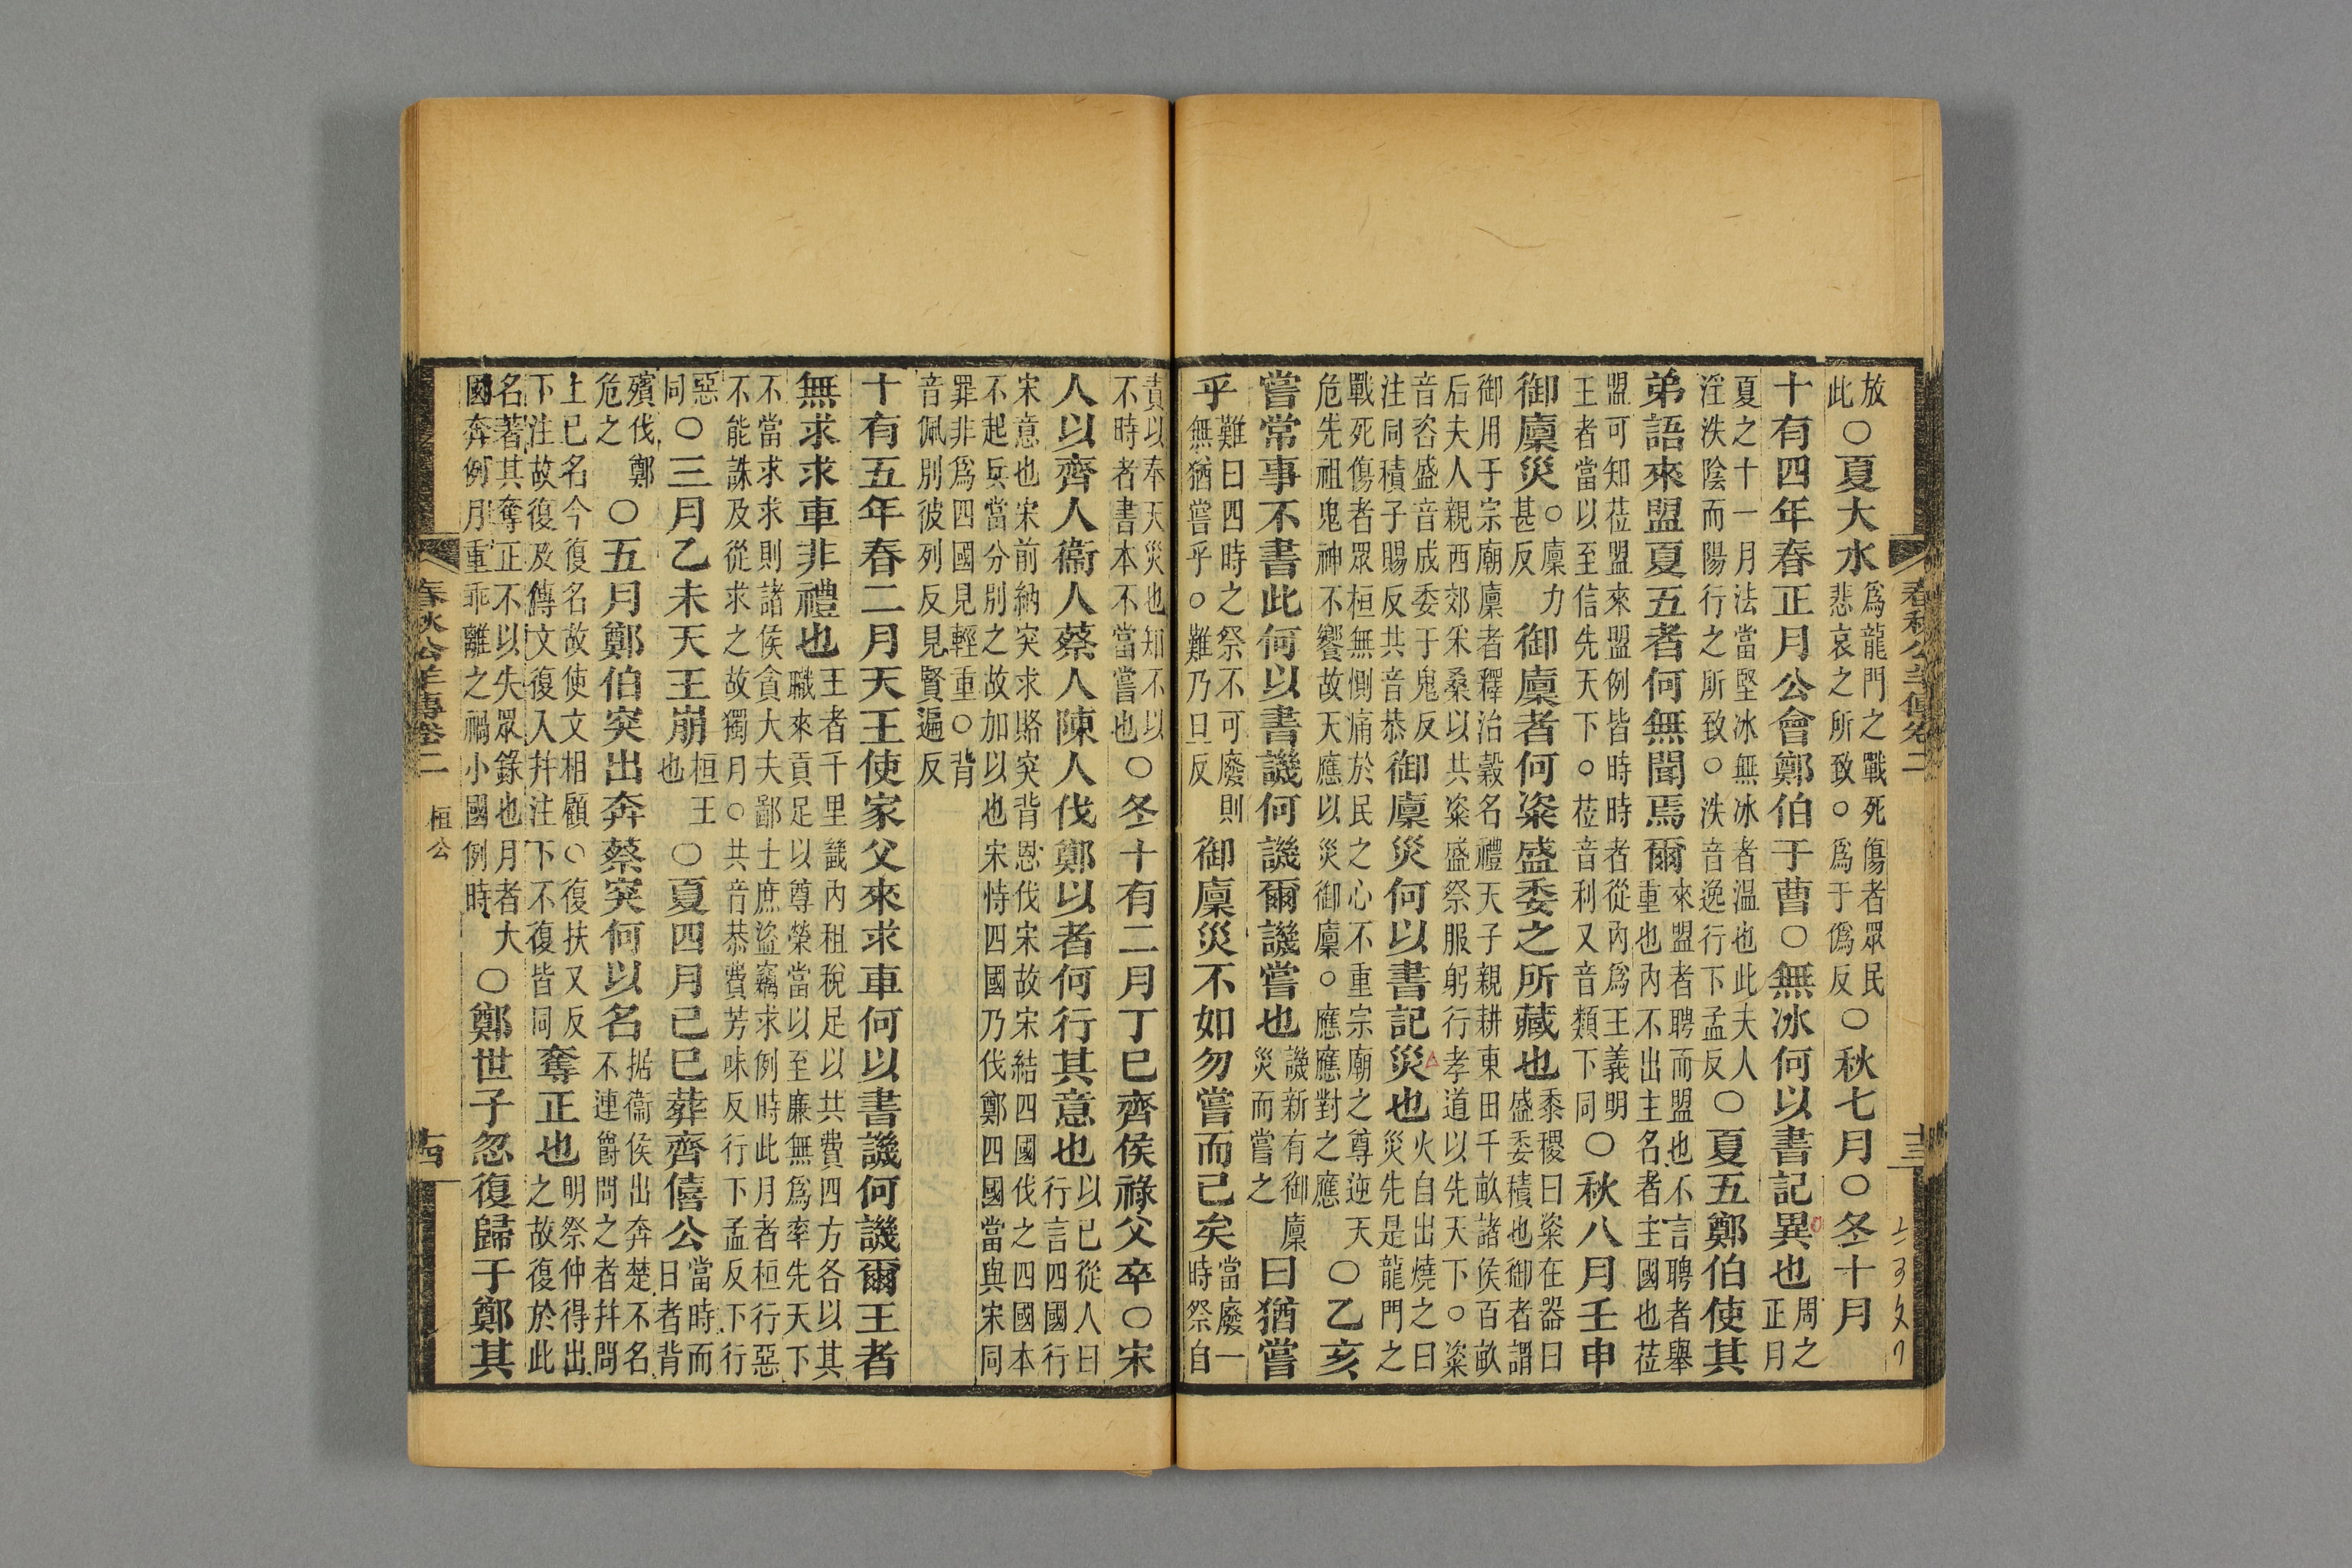 春秋公羊傳卷二 十三
放此○夏大水爲龍門之戰死傷者眾民悲哀之所致○爲于僞反○秋七月○冬十月
十有四年春正月公會鄭伯于曹○無冰何以書記異也周之正月
夏之十一月法當堅冰無冰者温也此夫人淫泆陰而陽行之所致○泆音逸行下孟反○夏五鄭伯使其
弟語來盟夏五者何無聞焉爾來盟者聘而盟也不言聘者舉重也內不出主名者主國也莅
盟可知莅盟來盟例皆時時者從內爲王義明王者當以至信先天下○莅音利又音類下同○秋八月壬申
御廩災○廩力甚反御廩者何粢盛委之所藏也黍稷曰粢在器曰盛委積也御者謂
御用于宗廟廩者釋治穀名禮天子親耕東田千畝諸侯百畝后夫人親西郊采桑以共粢盛祭服躬行孝道以先天下○粢
音咨盛音成委于鬼反注同積子賜反共音恭御廩災何以書記災也火自出燒之曰災先是龍門之
戰死傷者眾桓無惻痛於民之心不重宗廟之尊逆天危先祖鬼神不饗故天應以災御廩○應應對之應○乙亥
嘗常事不書此何以書譏何譏爾譏嘗也譏新有御廩災而嘗之曰猶嘗
乎難曰四時之祭不可廢則無猶嘗乎○難乃旦反御廩災不如勿嘗而已矣當廢一時祭自
責以奉天災也知不以不時者書本不當嘗也○冬十有二月丁巳齊侯祿父卒○宋
人以齊人衞人蔡人陳人伐鄭以者何行其意也以已從人曰行言四國行
宋意也宋前納突求賂突背恩伐宋故宋結四國伐之四國本不起兵當分別之故加以也宋恃四國乃伐鄭四國當與宋同
罪非爲四國見輕重○背音佩別彼列反見賢遍反
十有五年春二月天王使家父來求車何以書譏何譏爾王者
無求求車非禮也王者千里畿內租稅足以共費四方各以其職來貢足以尊榮當以至廉無爲率先天下
不當求求則諸侯貪大夫鄙士庶盜竊求例時此月者桓行惡不能誅及從求之故獨月○共音恭費芳味反行下孟反下行
惡同○三月乙未天王崩桓王也○夏四月己巳葬齊僖公當時而日者背
殯伐鄭危之○五月鄭伯突出奔蔡突何以名据衞侯出奔楚不名不連爵問之者幷問
上已名今復名故使文相顧○復扶又反下注故復及傳文復入幷注下不復皆同奪正也明祭仲得出之故復於此
名著其奪正不以失眾錄也月者大國奔例月重乖離之禍小國例時○鄭世子忽復歸于鄭其
春秋公羊傳卷二 桓公 十四